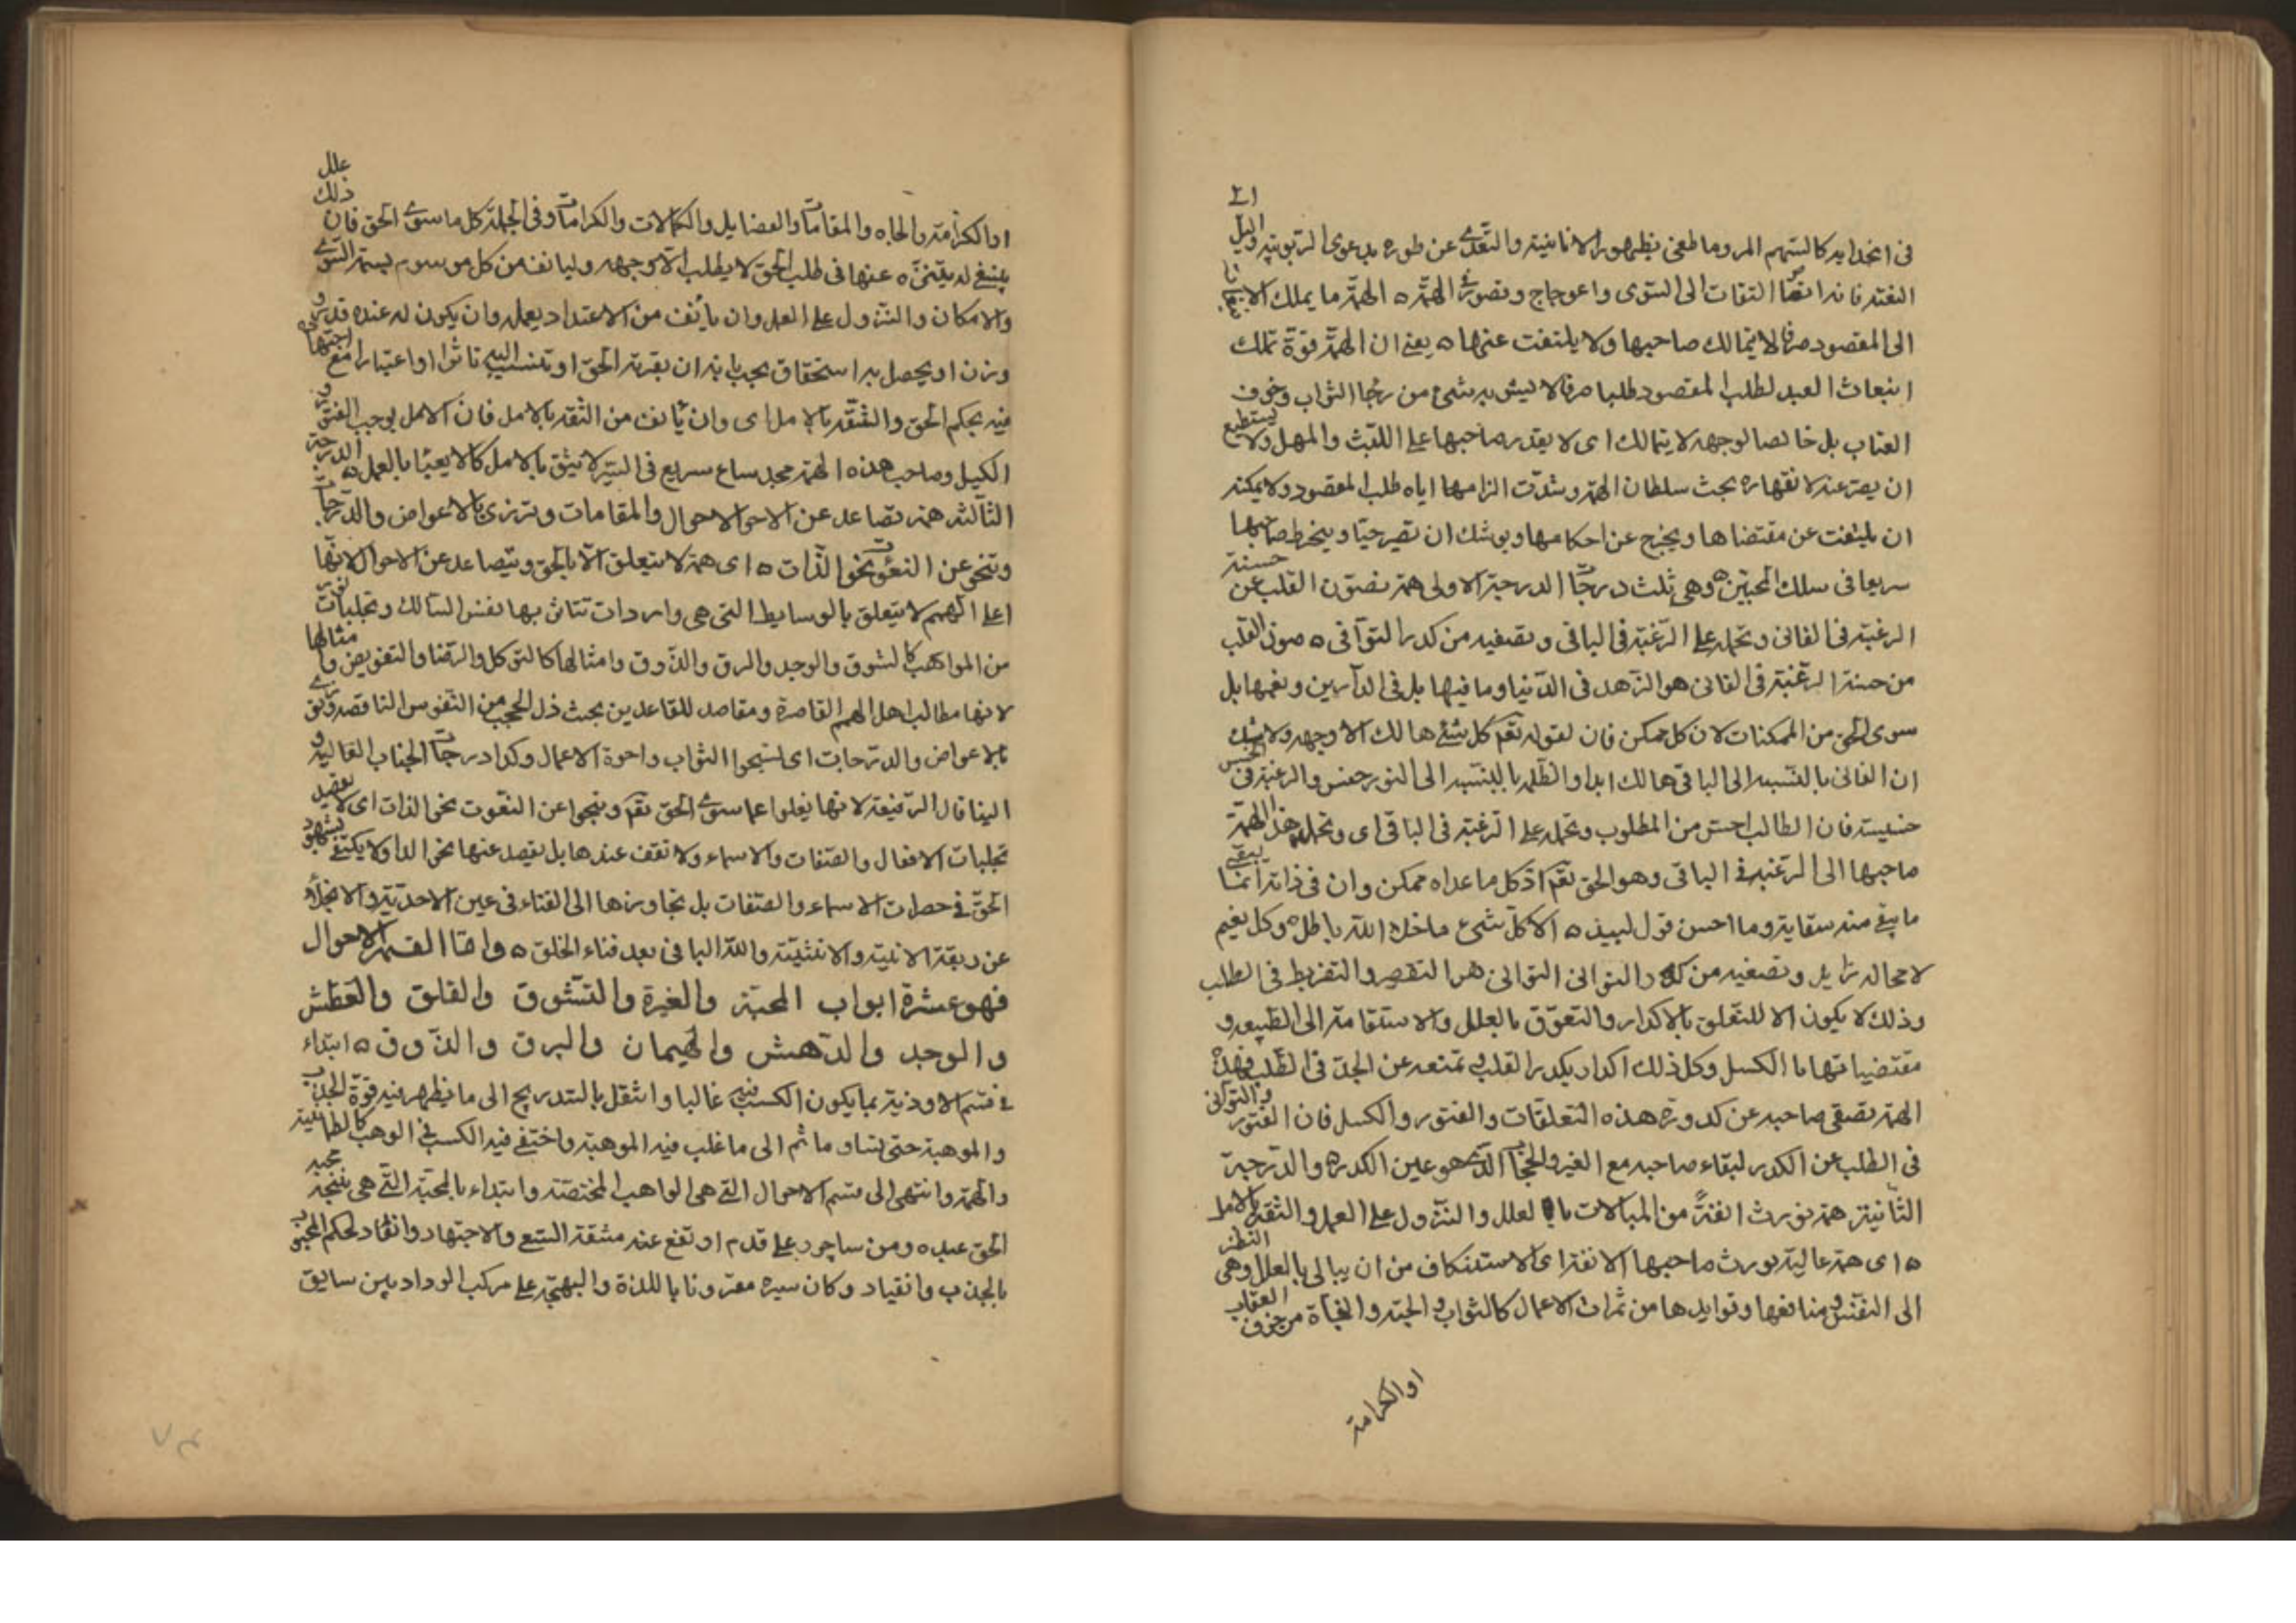 في انجذابه كالسهم المر وما طغى بظهور الانانية والتعدى عن طوره بدعوى الربوبية والميل الى
النفته فانه ايضا التفات الى السوى واعوجاج وتصور الهمة ه الهمة ما يملك الانبعاث
الى المقصود صرفا لا يتمالك صاحبها ولا يلتفت عنها ه يعنى ان الهمة قوة تملك
انبعاث العبد لطلب المقصود طلبا صرفا لا يشوبه شئ من رجا الثواب وخوف
العقاب بل خالصا لوجهه لا يتمالك اى لا يقدر صاحبها على اللبث والمهل ولا يستطيع
ان يصبر عنه لانقهاره بحث سلطان الهمة وشدت الزامها اياه طلب المقصود ولا يمكنه
ان يلتفت عن مقتضاها ويخرج عن احكامها ويوشك ان تصير حبا وينخرط صاحبها
سريعا في سلك المحبين ه وهى ثلث درجات الدرجة الاولى همة تصون القلب عن خسة
الرغبة في الفانى وتحمله على الرغبة في الباقى وتصفيه من كدر التوانى ه صون القلب
من خسة الرغبة في الفانى هو الزهد في الدنيا وما فيها بل في الدارين ونعيمها بل
سوى الحق من الممكنات لان كل ممكن فان لقوله تعم كل شئ هالك الا وجهه ولا شك
ان الفانى بالنسبه الى الباقى هالك ابدا والظلمه بالنسبه الى النور خس والرغبة في الخسيس
خسيسه فان الطالب اخس من المطلوب وتحمله على الرغبة في الباقى اى وتحمل هذه الهمة
صاحبها الى الرغبة في الباقى وهو الحق تعم اذ كل ما عداه ممكن وان في ذاته انما يبقى
ما بقى منه ببقايه وما احسن قول لبيد ه الا كل شئ ما خلا الله باطل ه وكل نعيم
لا محاله زايل وتصفيه من كدر التوانى التوانى هو التقصير والتفريط في الطلب
وذلك لا يكون الا للتعلق بالاكدار والتعوق بالعلل والاستقامة الى الطبيعه و
مقتضياتها بالكسل وكل ذلك اكدار يكدر القلب تمنعه عن الجد في الطلب فهذه
الهمة تصفى صاحبه عن كدورة هذه التعلقات والفتور والكسل فان الفتور والتوانى
في الطلب من الكدر لبقاء صاحبه مع الغير والحجاب الذى هو عين الكدر ه والدرجة
الثانية همة تورث انفة من المبالات بالعلل والنزول على العمل والثقة بالامل
ه اى همة عالية تورث صاحبها الانفة اى الاستنكاف من ان يبالى بالعلل وهى النظر
الى النفس ومنافعها وفوايدها من ثمرات الاعمال كالثواب والجنه والنجاة من خوف العقاب
او الكرامة
او الكرامة والجاه والمقامات والفضايل والكمالات والكرامات وفي الجملة كل ما سوى الحق فان ذلك علل
ينبغى له يتنزه عنها في طلب الحق لا يطلب الا وجهه وليانف من كل موسوم بسمة السوى
والامكان والنزول على العمل وان يانف من الاعتداد بعمله وان يكون له عنده قدر و
وزن او يحصل به استحقاق
فيه بحكم الحق والثقة بالامل اى وان يانف من الثقه بالامل فان الامل يوجب الفتور
الكسل وصاحب هذه الهمة مجد ساع سريع في السير لا يثق بالامل كما لا يعبا بالعمل ه الدرجة
الثالثه همة تصاعد عن الاحوال والمقامات وتزرى بالاعواض والدرجات
وتنحو عن النعوت نحو الذات ه اى همة لا يتعلق الا بالحق ويتصاعد عن الاحوال لانها
اعلى الهمم لا يتعلق بالوسايط التى هى واردات تتاثر بها نفس السالك وتجليات
من المواهب كالشوق والوجد والبرق والذوق وامثالها كالتوكل والرضا والتفويض وامثالها
لانها مطالب اهل الهمم القاصرة ومقاصد للقاعدين بحث ذل الحجب من النفوس الناقصه
بالاعواض والدرجات اى
تجليات الافعال والصفات والاسماء ولا تقف عندها بل يقصد عنها نحو الذات ولا يكتفى بشهود
الحق في حضرات الاسماء والصفات بل تجاوزها الى الفناء في عين الاحدية والانخلاع
عن ربقة الانية والاثنينية والله الباقى بعد فناء الخلق ه واما القسم الاحوال
فهو عشرة ابواب المحبة والغيرة والتشوق والقلق والعطش
والوجد والدهش والهيمان والبرق والذوق ه ابتداء
في قسم الاودية بما يكون الكسب فيه غالبا وانتقل بالتدريج الى ما يظهر فيه قوة الجذب
والموهبة حتى تساوما ثم الى ما غلب فيه الموهبة واختفى فيه الكسب في الوهب كالطمانينة
والهمة وانتهى الى قسم الاحوال التى هى المواهب المختصة وابتداء بالمحبة التى هى نتيجة محبة
الحق عبده ومن
بالجذب وانقياد وكان سيره مقرونا باللذة والبهجة على مركب الوداد بين سايق